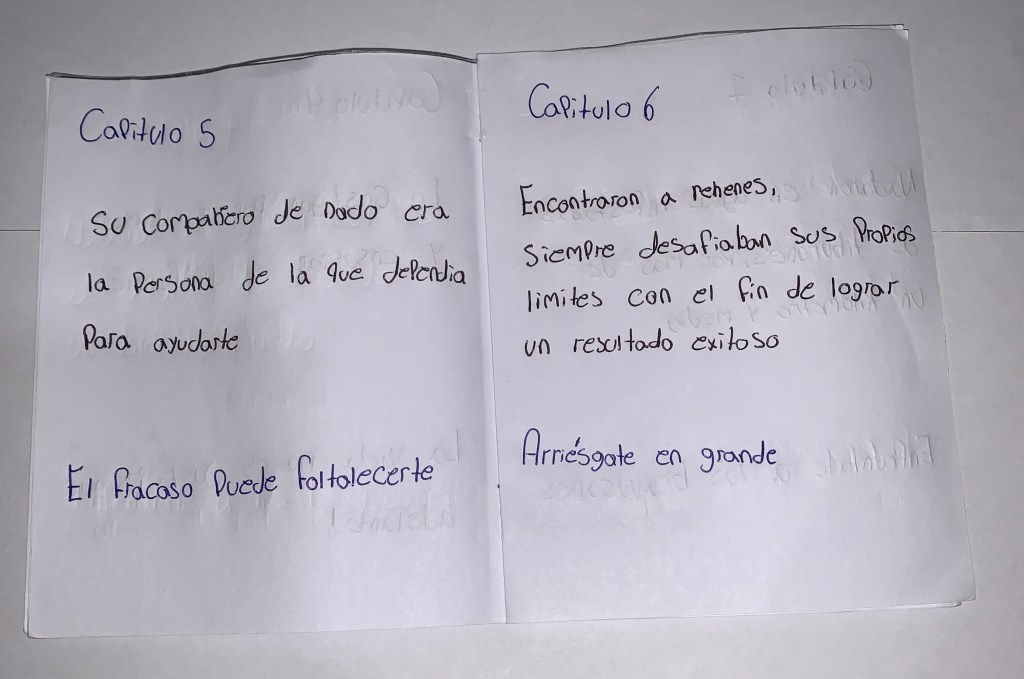 Capitulo 5
Su compañero de nado era
la Persona de la que dependia
Para ayudarte
El fracaso Puede foltalecerte
Capitulo 6
Encontraron a rehenes,
siempre desafiaban sus Propios
limites con el fin de lograr
un resultado exitoso
Arriésgate en grande